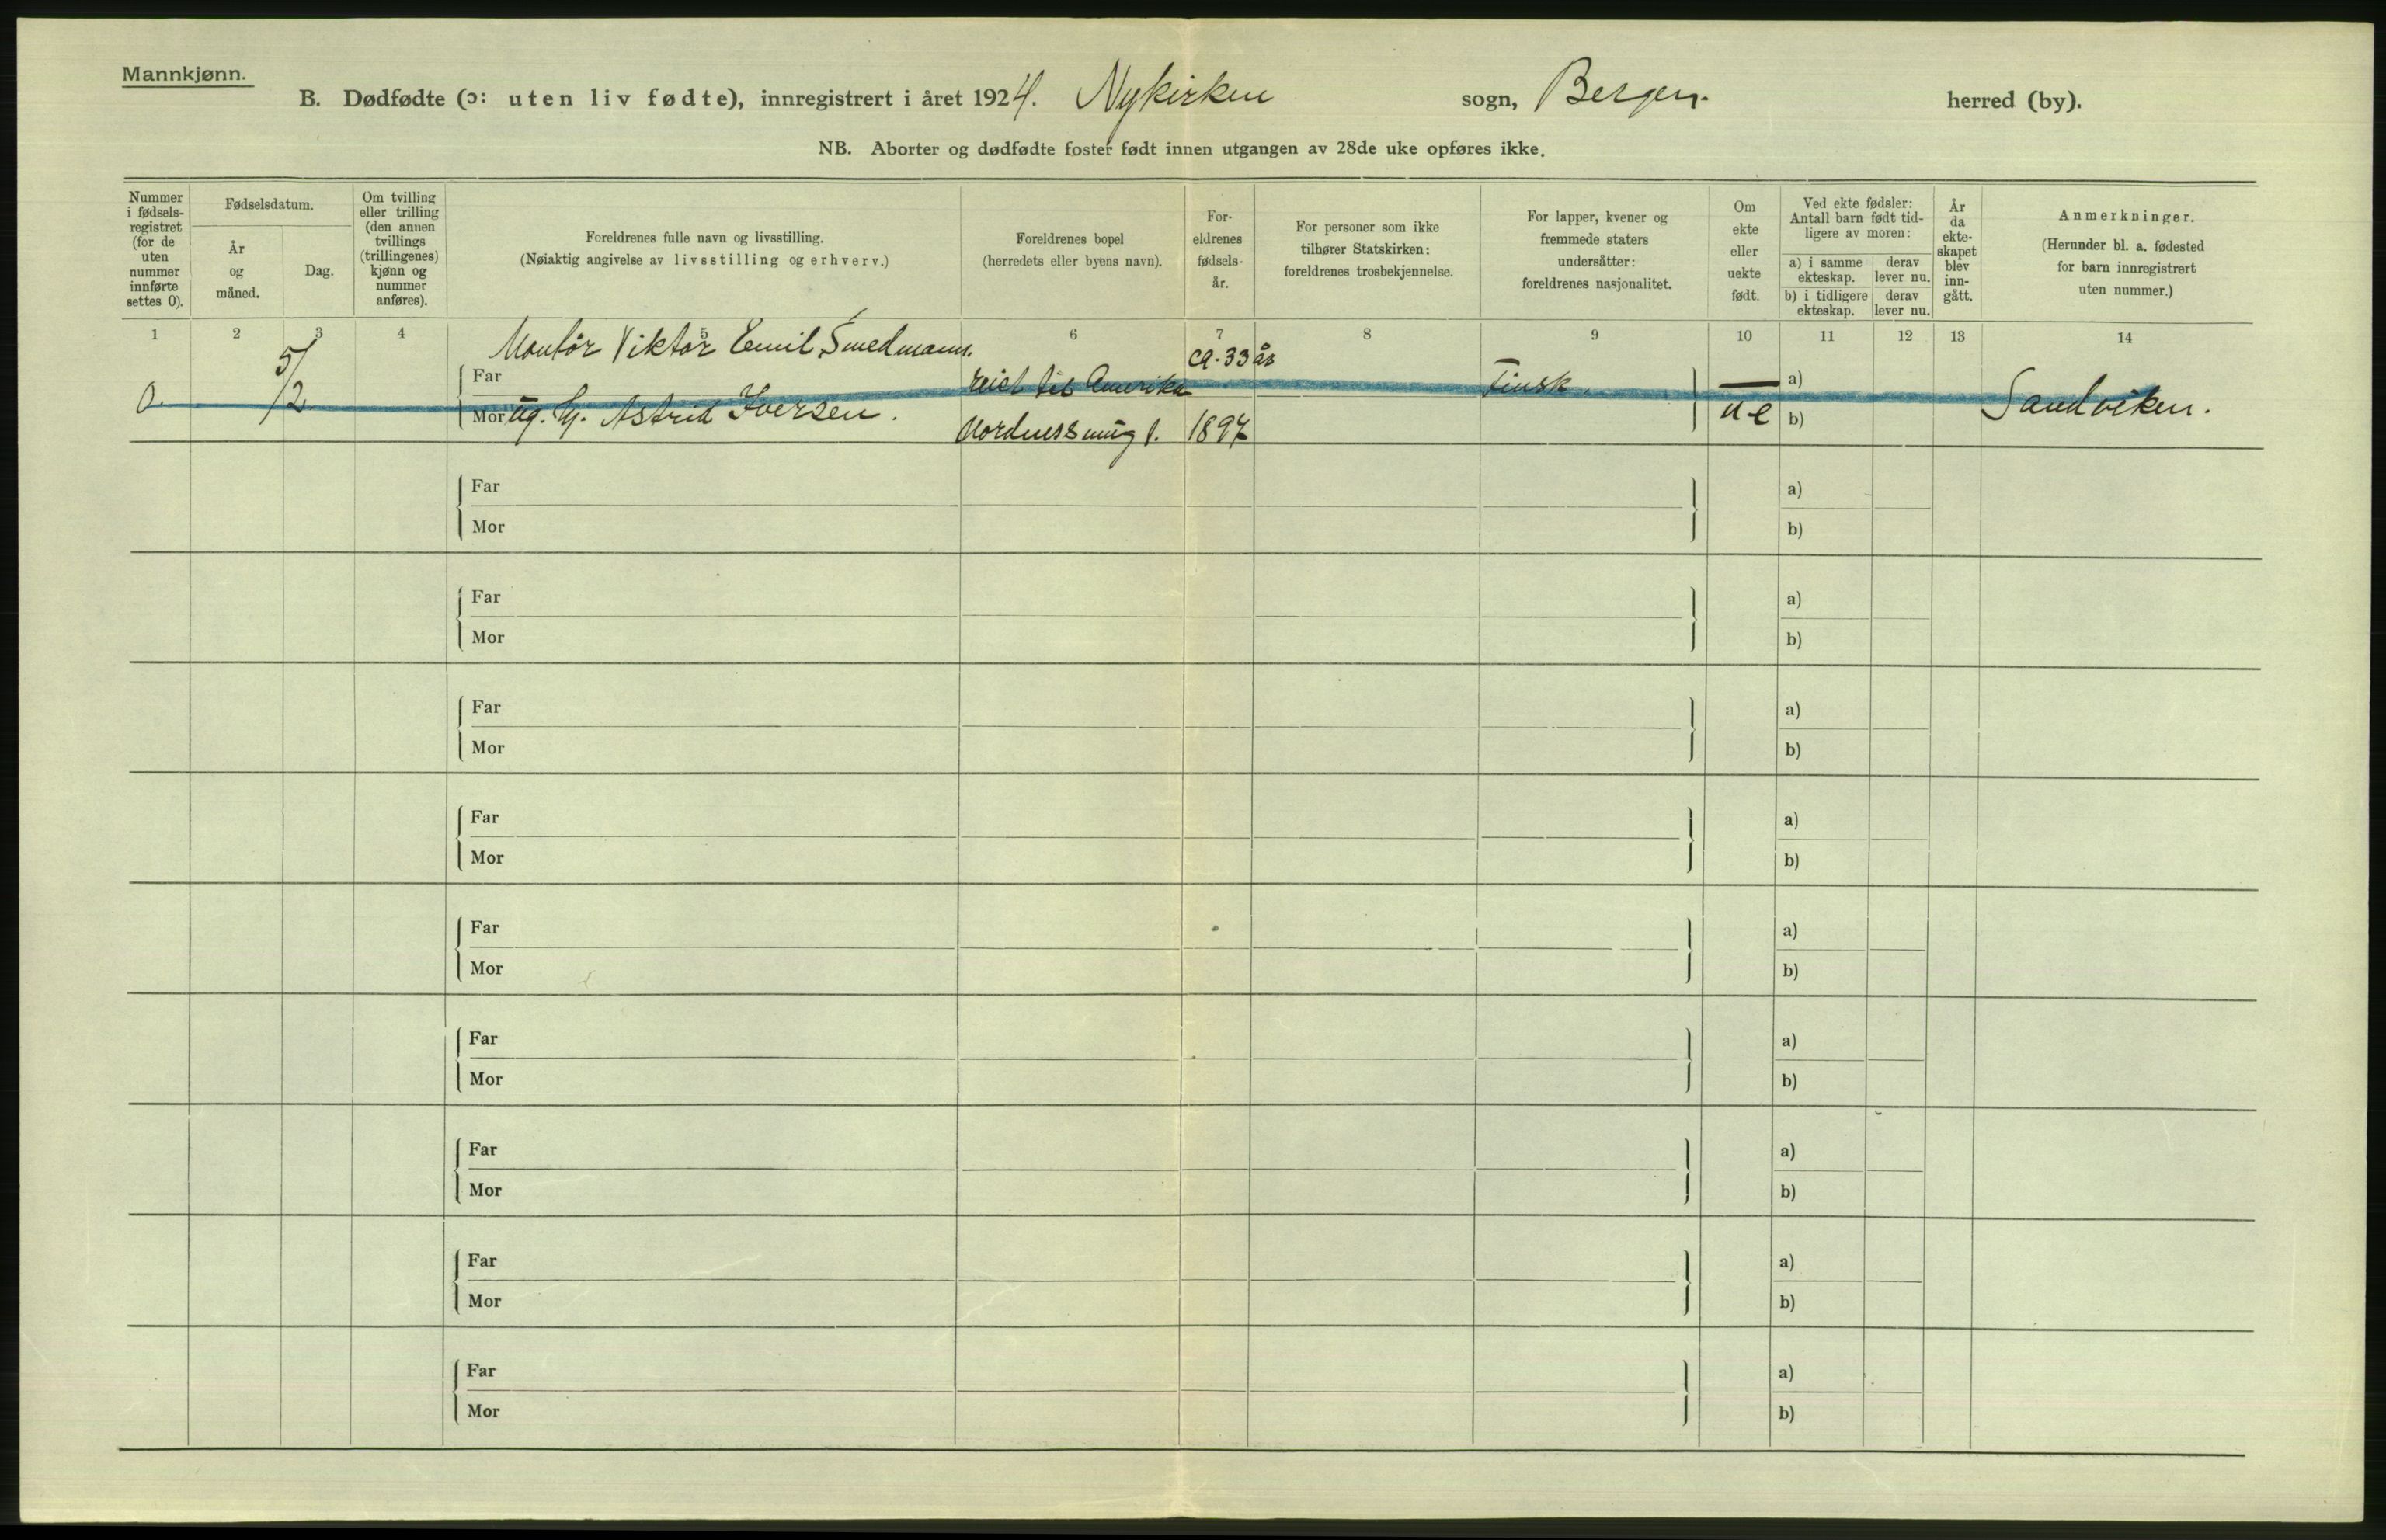 Mannkjønn.
B. Dødfødte (ɔ: uten liv fødte), innregistrert i året 1924. Nykirken sogn, Bergen. herred (by).
NB. Aborter og dødfødte foster født innen utgangen av 28de uke opføres ikke.
Nummer i fødsels-registret (for de uten nummer innførte settes 0).
Fødselsdatum.
År og måned.
Dag.
Om tvilling eller trilling (den annen tvillings (trillingenes) kjønn og nummer anføres).
Foreldrenes fulle navn og livsstilling.
(Nøiaktig angivelse av livsstilling og erhverv.)
Foreldrenes bopel
(herredets eller byens navn).
For-eldrenes fødsels-år.
For personer som ikke tilhører Statskirken: foreldrenes trosbekjennelse.
For lapper, kvener og fremmede staters undersåtter: foreldrenes nasjonalitet.
Om ekte eller uekte født.
Ved ekte fødsler: Antall barn født tid-ligere av moren:
a) i samme ekteskap.
derav lever nu.
b) i tidligere ekteskap.
derav lever nu.
År da ekte-skapet blev inn-gått.
Anmerkninger.
(Herunder bl. a. fødested for barn innregistrert uten nummer.)
1 2 3 4 5 6 7 8 9 10 11 12 13 14
Montør Viktor Emil Smedmann. ca. 33 år
Far reist til Amerika Finsk. a)
0. 5/2
Mor ug. Astrid Iversen. Nordnessmug 1. 1897 u-e b) Sandviken.
Far a)
Mor b)
Far a)
Mor b)
Far a)
Mor b)
Far a)
Mor b)
Far a)
Mor b)
Far a)
Mor b)
Far a)
Mor b)
Far a)
Mor b)
Far a)
Mor b)